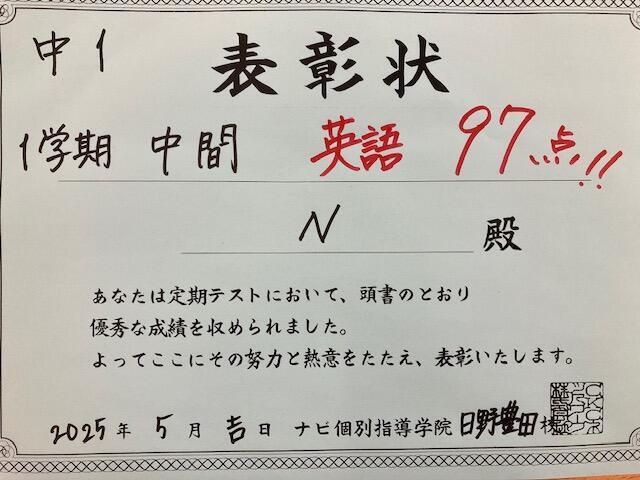 中1
表彰状
1学期 中間 英語 97点!!
N 殿
あなたは定期テストにおいて、頭書のとおり
優秀な成績を収められました。
よってここにその努力と熱意をたたえ、表彰いたします。
2025年 5月 吉日 ナビ個別指導学院 日野豊田校